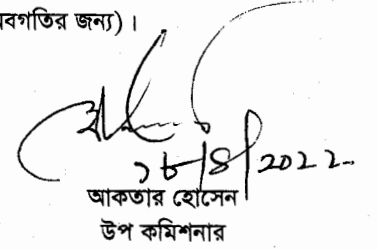 বগতির জন্য)।
১৮/৪/2022
আকতার হোসেন
উপ কমিশনার